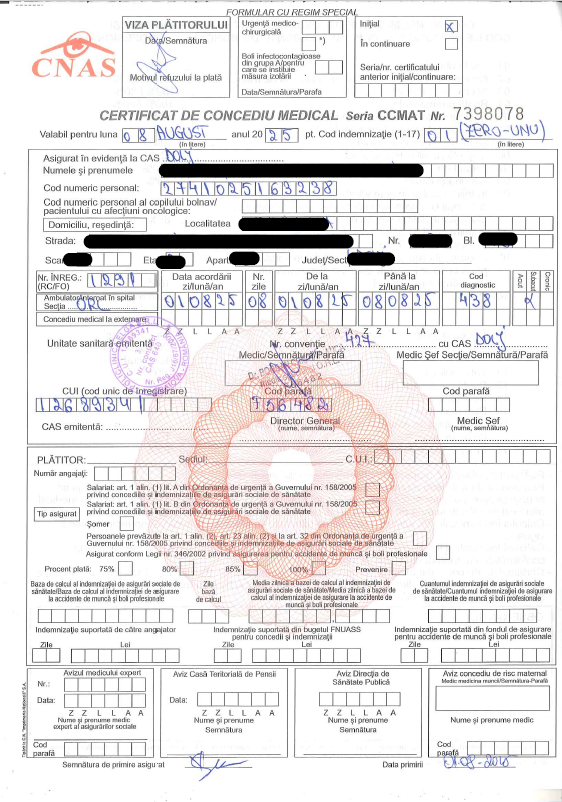 FORMULAR CU REGIM SPECIAL
CNAS
VIZA PLĂTITORULUI
Data/Semnătura
Motivul refuzului la plată
Urgență medico-chirurgicală
*)
Boli infectocontagioase
din grupa A/pentru
care se instituie
măsura izolării
Data/Semnătura/Parafa
Inițial X
În continuare
Seria/nr. certificatului
anterior inițial/continuare:
CERTIFICAT DE CONCEDIU MEDICAL Seria CCMAT Nr. 7398078
Valabil pentru luna 08 AUGUST anul 2025 pt. Cod indemnizație (1-17) 01 (ZERO-UNU)
(în litere) (în litere)
Asigurat în evidență la CAS DOLJ
Numele și prenumele
Cod numeric personal: 2741025163238
Cod numeric personal al copilului bolnav/
pacientului cu afecțiuni oncologice:
Domiciliu, reședință: Localitatea
Strada: Nr. Bl.
Scar Eta Apart Județ/Sect
Nr. ÎNREG.: (RC/FO) 1231
Data acordării zi/lună/an
Nr. zile
De la zi/lună/an
Până la zi/lună/an
Cod diagnostic
Acut
Subacut
Cronic
Ambulator/internat în spital
Secția ORL 010825 08 010825 080825 438
Concediu medical la externare:
Z Z L L A A Z Z L L A A Z Z L L A A
Unitate sanitară emitentă Nr. convenție 427 cu CAS DOLJ
Medic/Semnătură/Parafă Medic Șef Secție/Semnătură/Parafă
CUI (cod unic de înregistrare) Cod parafă Cod parafă
12689341 756482
CAS emitentă: Director General Medic Șef
(nume, semnătura) (nume, semnătura)
PLĂTITOR: Sediul: C.U.I.:
Număr angajați:
Tip asigurat
Salariat: art. 1 alin. (1) lit. A din Ordonanța de urgență a Guvernului nr. 158/2005
privind concediile și indemnizațiile de asigurări sociale de sănătate
Salariat: art. 1 alin. (1) lit. B din Ordonanța de urgență a Guvernului nr. 158/2005
privind concediile și indemnizațiile de asigurări sociale de sănătate
Șomer
Persoanele prevăzute la art. 1 alin. (2), art. 23 alin. (2) și la art. 32 din Ordonanța de urgență a
Guvernului nr. 158/2005 privind concediile și indemnizațiile de asigurări sociale de sănătate
Asigurat conform Legii nr. 346/2002 privind asigurarea pentru accidente de muncă și boli profesionale
Procent plată: 75% 80% 85% 100% Prevenire
Baza de calcul al indemnizației de asigurări sociale de
sănătate/Baza de calcul al indemnizației de asigurare
la accidente de muncă și boli profesionale
Zile
bază de
calcul
Media zilnică a bazei de calcul al indemnizației de
asigurări sociale de sănătate/Media zilnică a bazei de
calcul al indemnizației de asigurare la accidente de
muncă și boli profesionale
Cuantumul indemnizației de asigurări sociale
de sănătate/Cuantumul indemnizației de asigurare
la accidente de muncă și boli profesionale
Indemnizație suportată de către angajator
Indemnizație suportată din bugetul FNUASS
pentru concedii și indemnizații
Indemnizație suportată din fondul de asigurare
pentru accidente de muncă și boli profesionale
Zile Lei Zile Lei Zile Lei
Avizul medicului expert
Nr.:
Data:
Z Z L L A A
Nume și prenume medic
expert al asigurărilor sociale
Cod parafă
Aviz Casă Teritorială de Pensii
Data:
Z Z L L A A
Nume și prenume
Semnătura
Aviz Direcția de
Sănătate Publică
Z Z L L A A
Nume și prenume
Semnătura
Aviz concediu de risc maternal
Medic medicina muncii/Semnătură-Parafă
Nume și prenume medic
Cod parafă
Semnătura de primire asigurat Data primirii